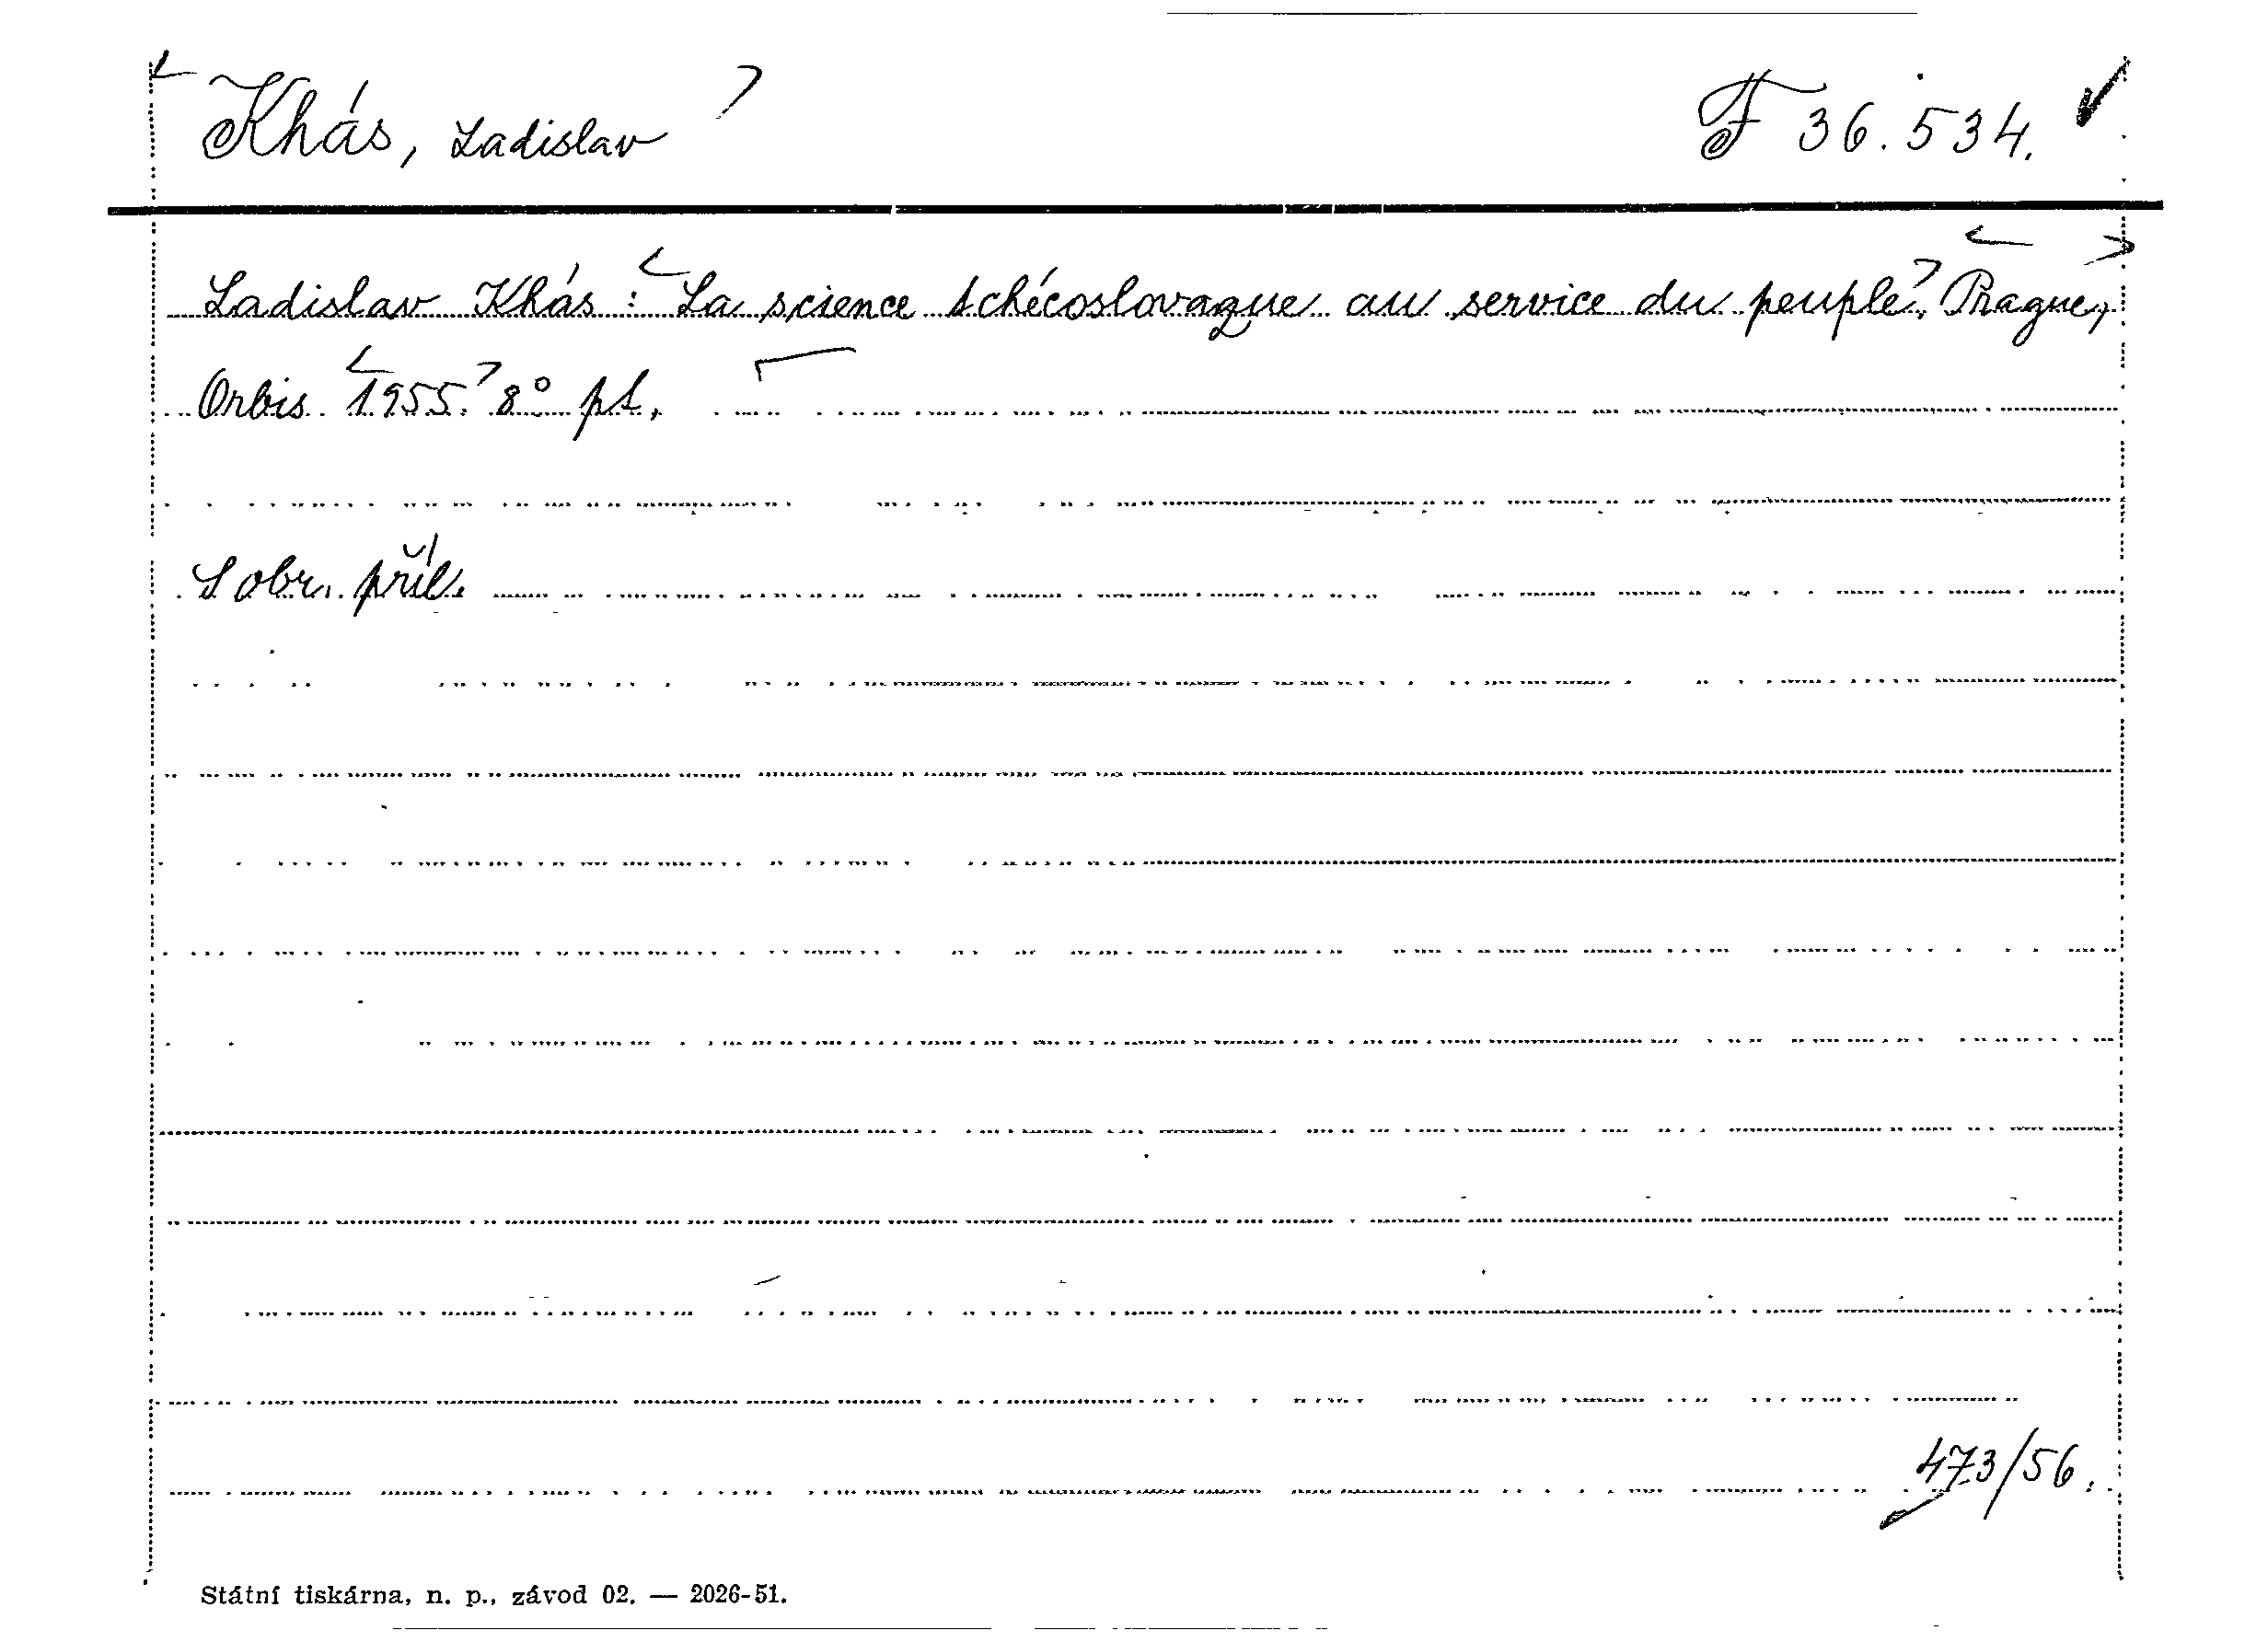 Khás, Ladislav
F 36.534.
Ladislav Khás: La science tchécoslovaque au service du peuple. Prague,
Orbis 1955. 8° pt.
S obr. příl.
473/56.
Státní tiskárna, n. p., závod 02. — 2026-51.